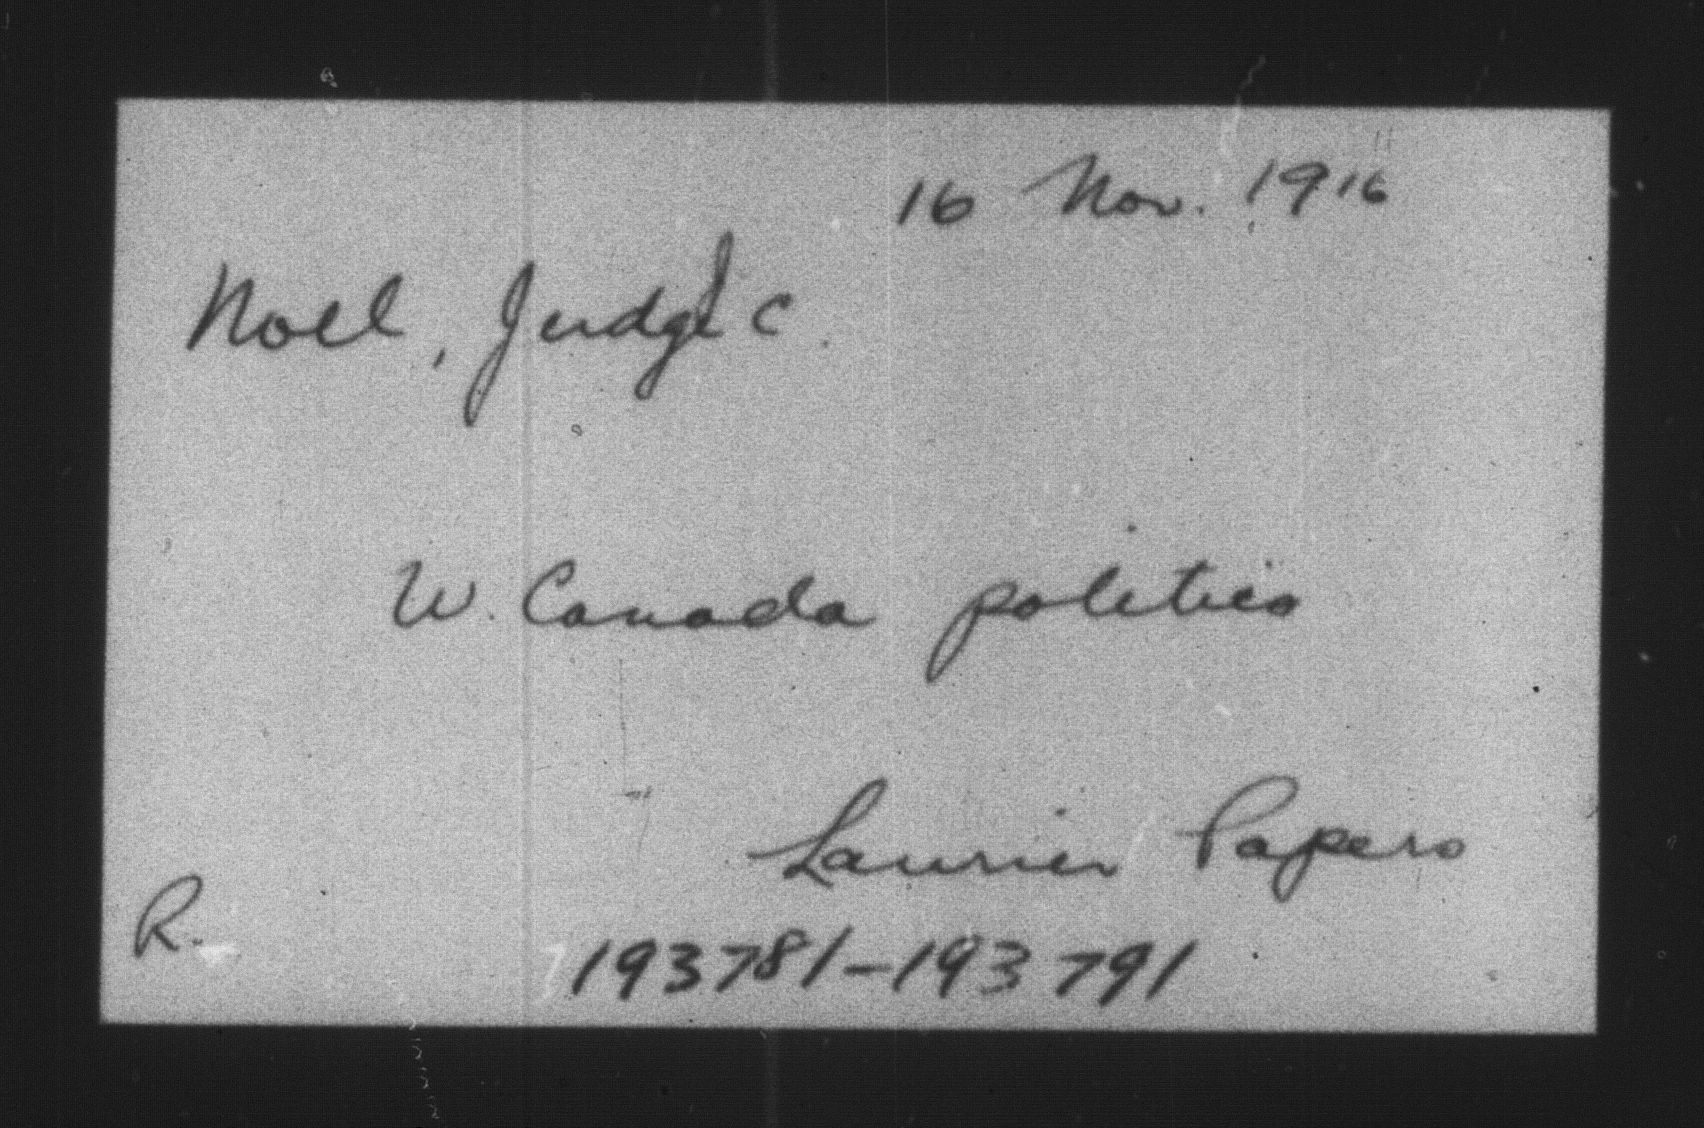 16 Nov. 1916
Noel, Judge C.
W. Canada politics
Laurier Papers
R.
193781-193791